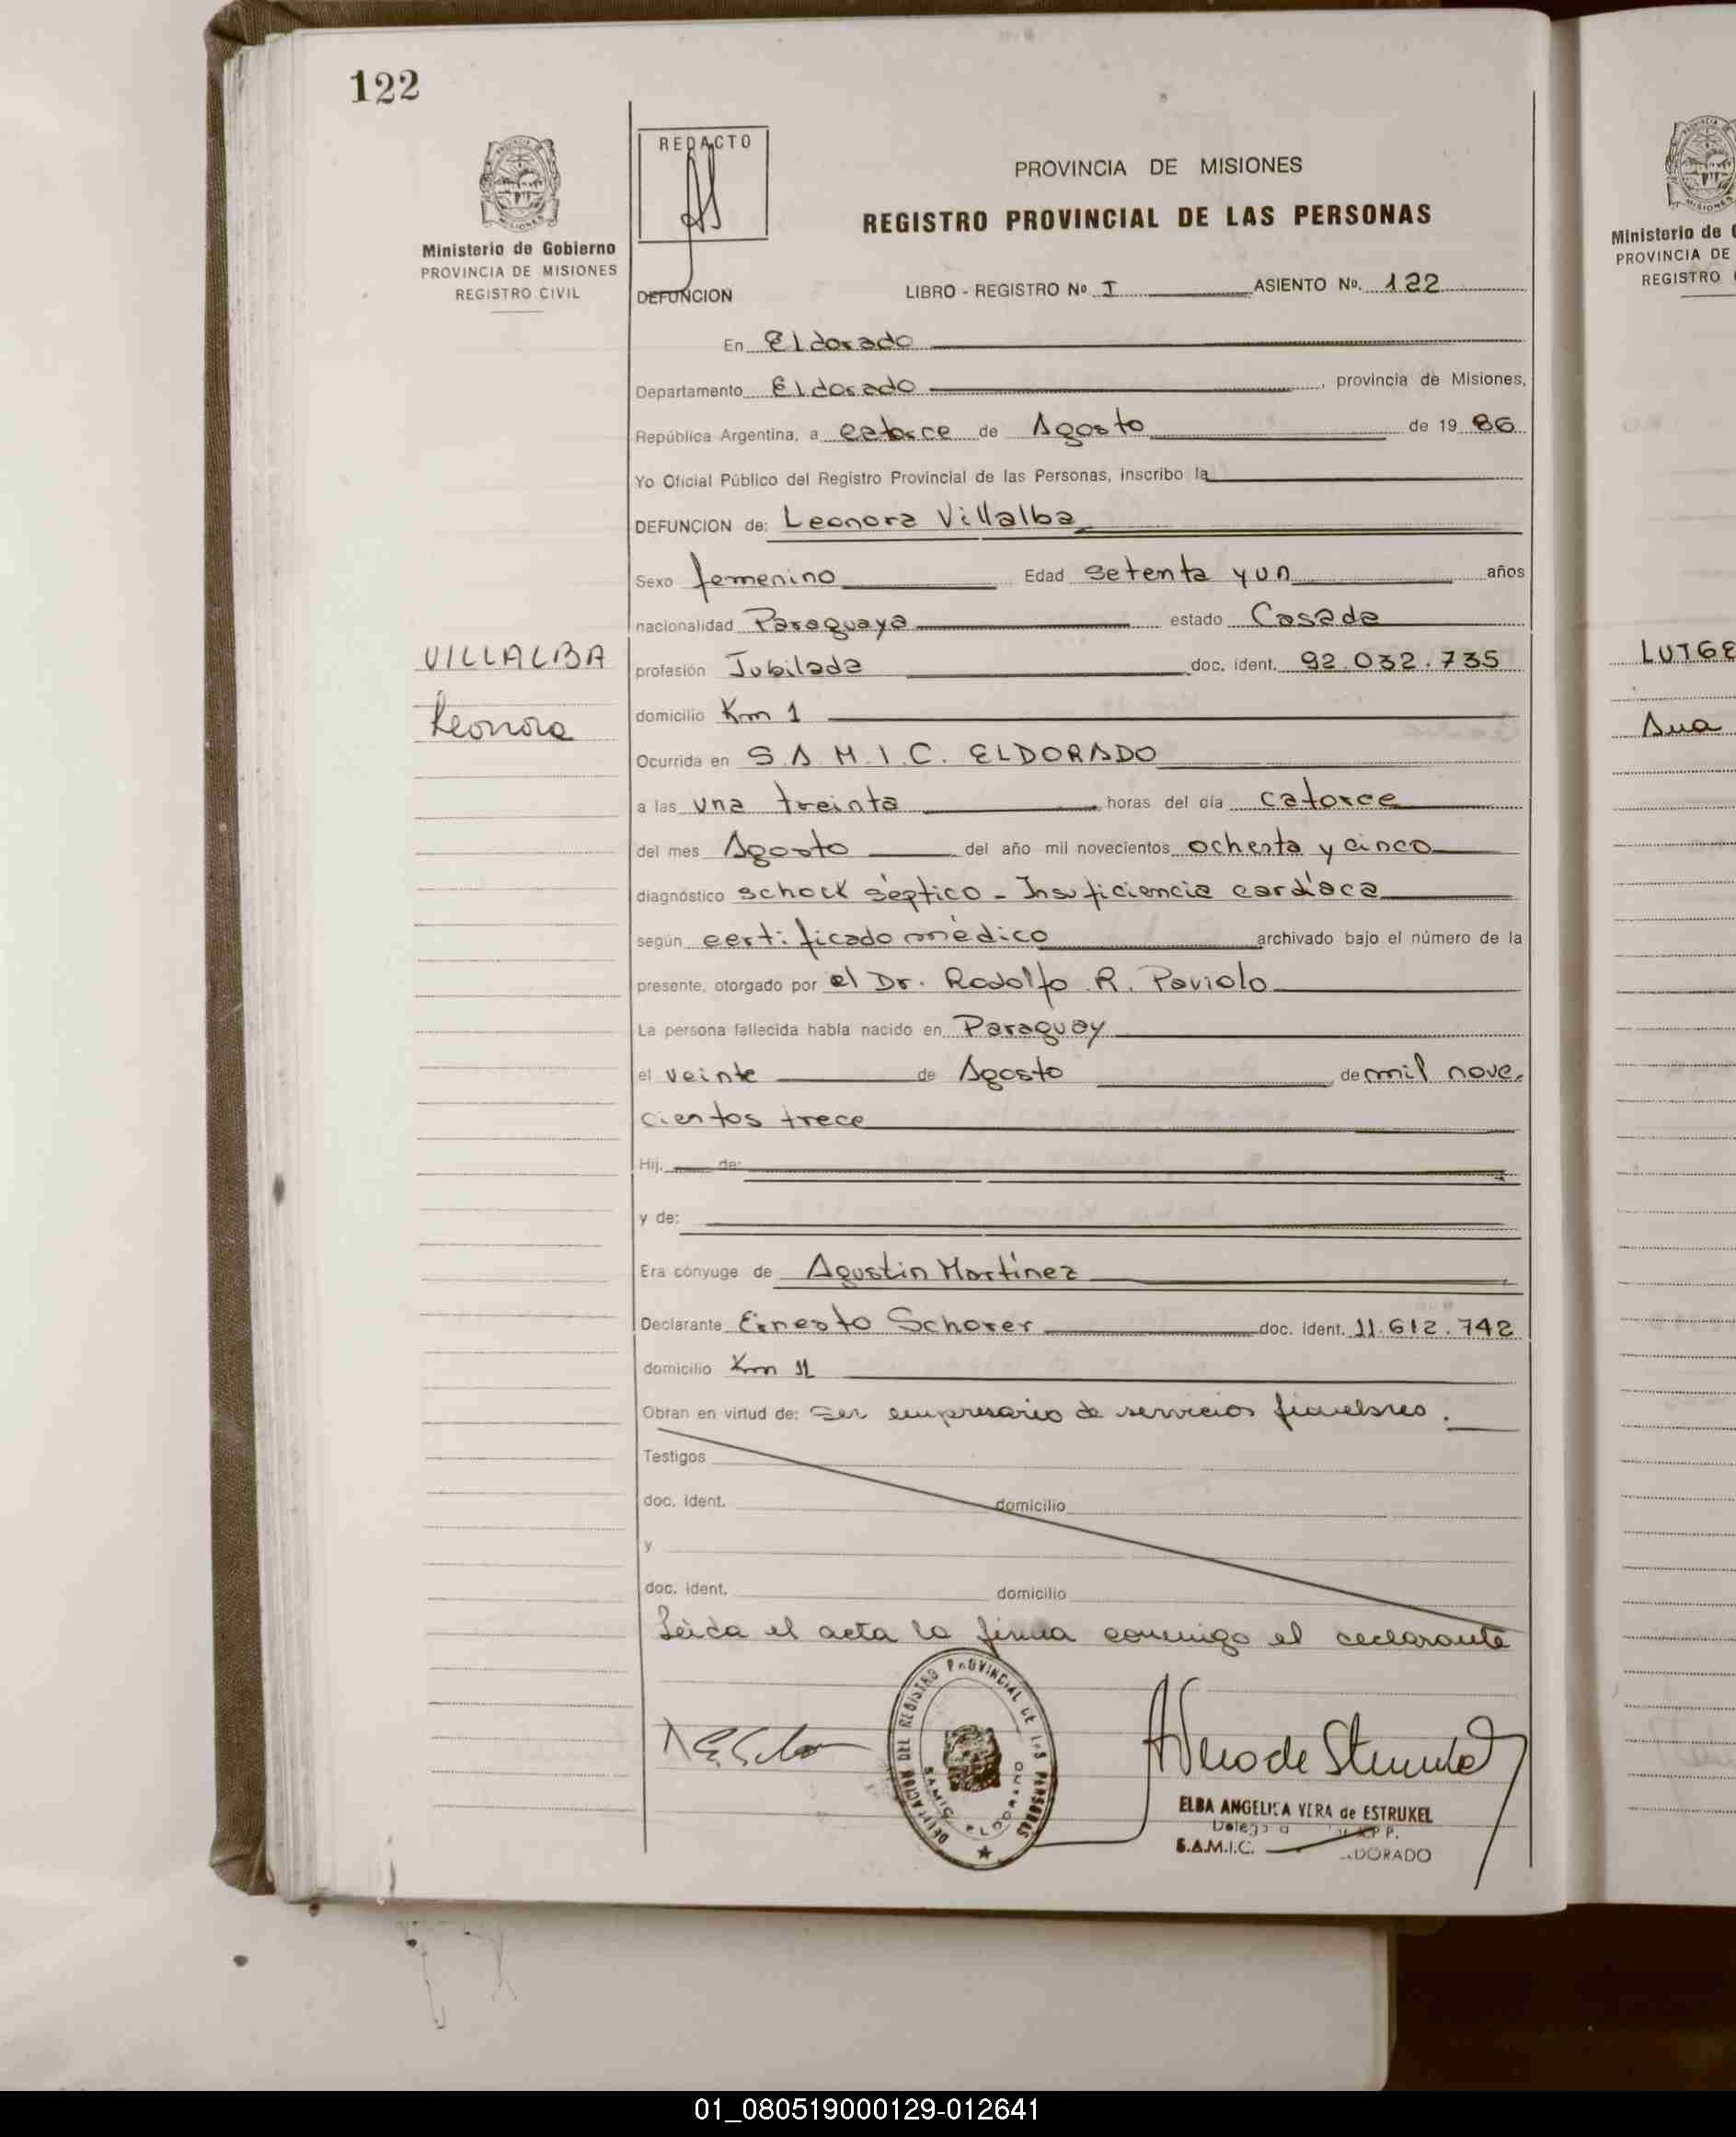 122
REDACTO
Ministerio de Gobierno
PROVINCIA DE MISIONES
REGISTRO CIVIL
PROVINCIA DE MISIONES
REGISTRO PROVINCIAL DE LAS PERSONAS
DEFUNCION LIBRO - REGISTRO Nº I ASIENTO Nº. 122
En Eldorado
Departamento Eldorado, provincia de Misiones,
República Argentina, a catorce de Agosto de 19 86
Yo Oficial Público del Registro Provincial de las Personas, inscribo la
DEFUNCION de: Leonora Villalba
Sexo femenino Edad setenta y un años
nacionalidad Paraguaya estado Casada
VILLALBA
Leonora
profesión Jubilada doc. ident. 92.032.735
domicilio Km 1
Ocurrida en S.A.M.I.C. ELDORADO
a las una treinta horas del día catorce
del mes Agosto del año mil novecientos ochenta y cinco
diagnóstico schock séptico - Insuficiencia cardíaca
según certificado médico archivado bajo el número de la
presente, otorgado por el Dr. Rodolfo R. Paviolo
La persona fallecida había nacido en Paraguay
el veinte de Agosto de mil nove.
cientos trece
Hij. de:
y de:
Era cónyuge de Agustin Martínez
Declarante Ernesto Schorer doc. ident. 11.612.742
domicilio Km 11
Obran en virtud de: ser empresario de servicios fúnebres.
Testigos
doc. ident. domicilio
y
doc. ident. domicilio
Leída el acta la firma conmigo el declarante
DELEGACION DEL REGISTRO PROVINCIAL DE LAS PERSONAS
SAMIC ELDORADO
ELBA ANGELICA VERA de ESTRUKEL
S.A.M.I.C.
Ministerio de G
PROVINCIA DE
REGISTRO
LUTGE
Ana
01_080519000129-012641